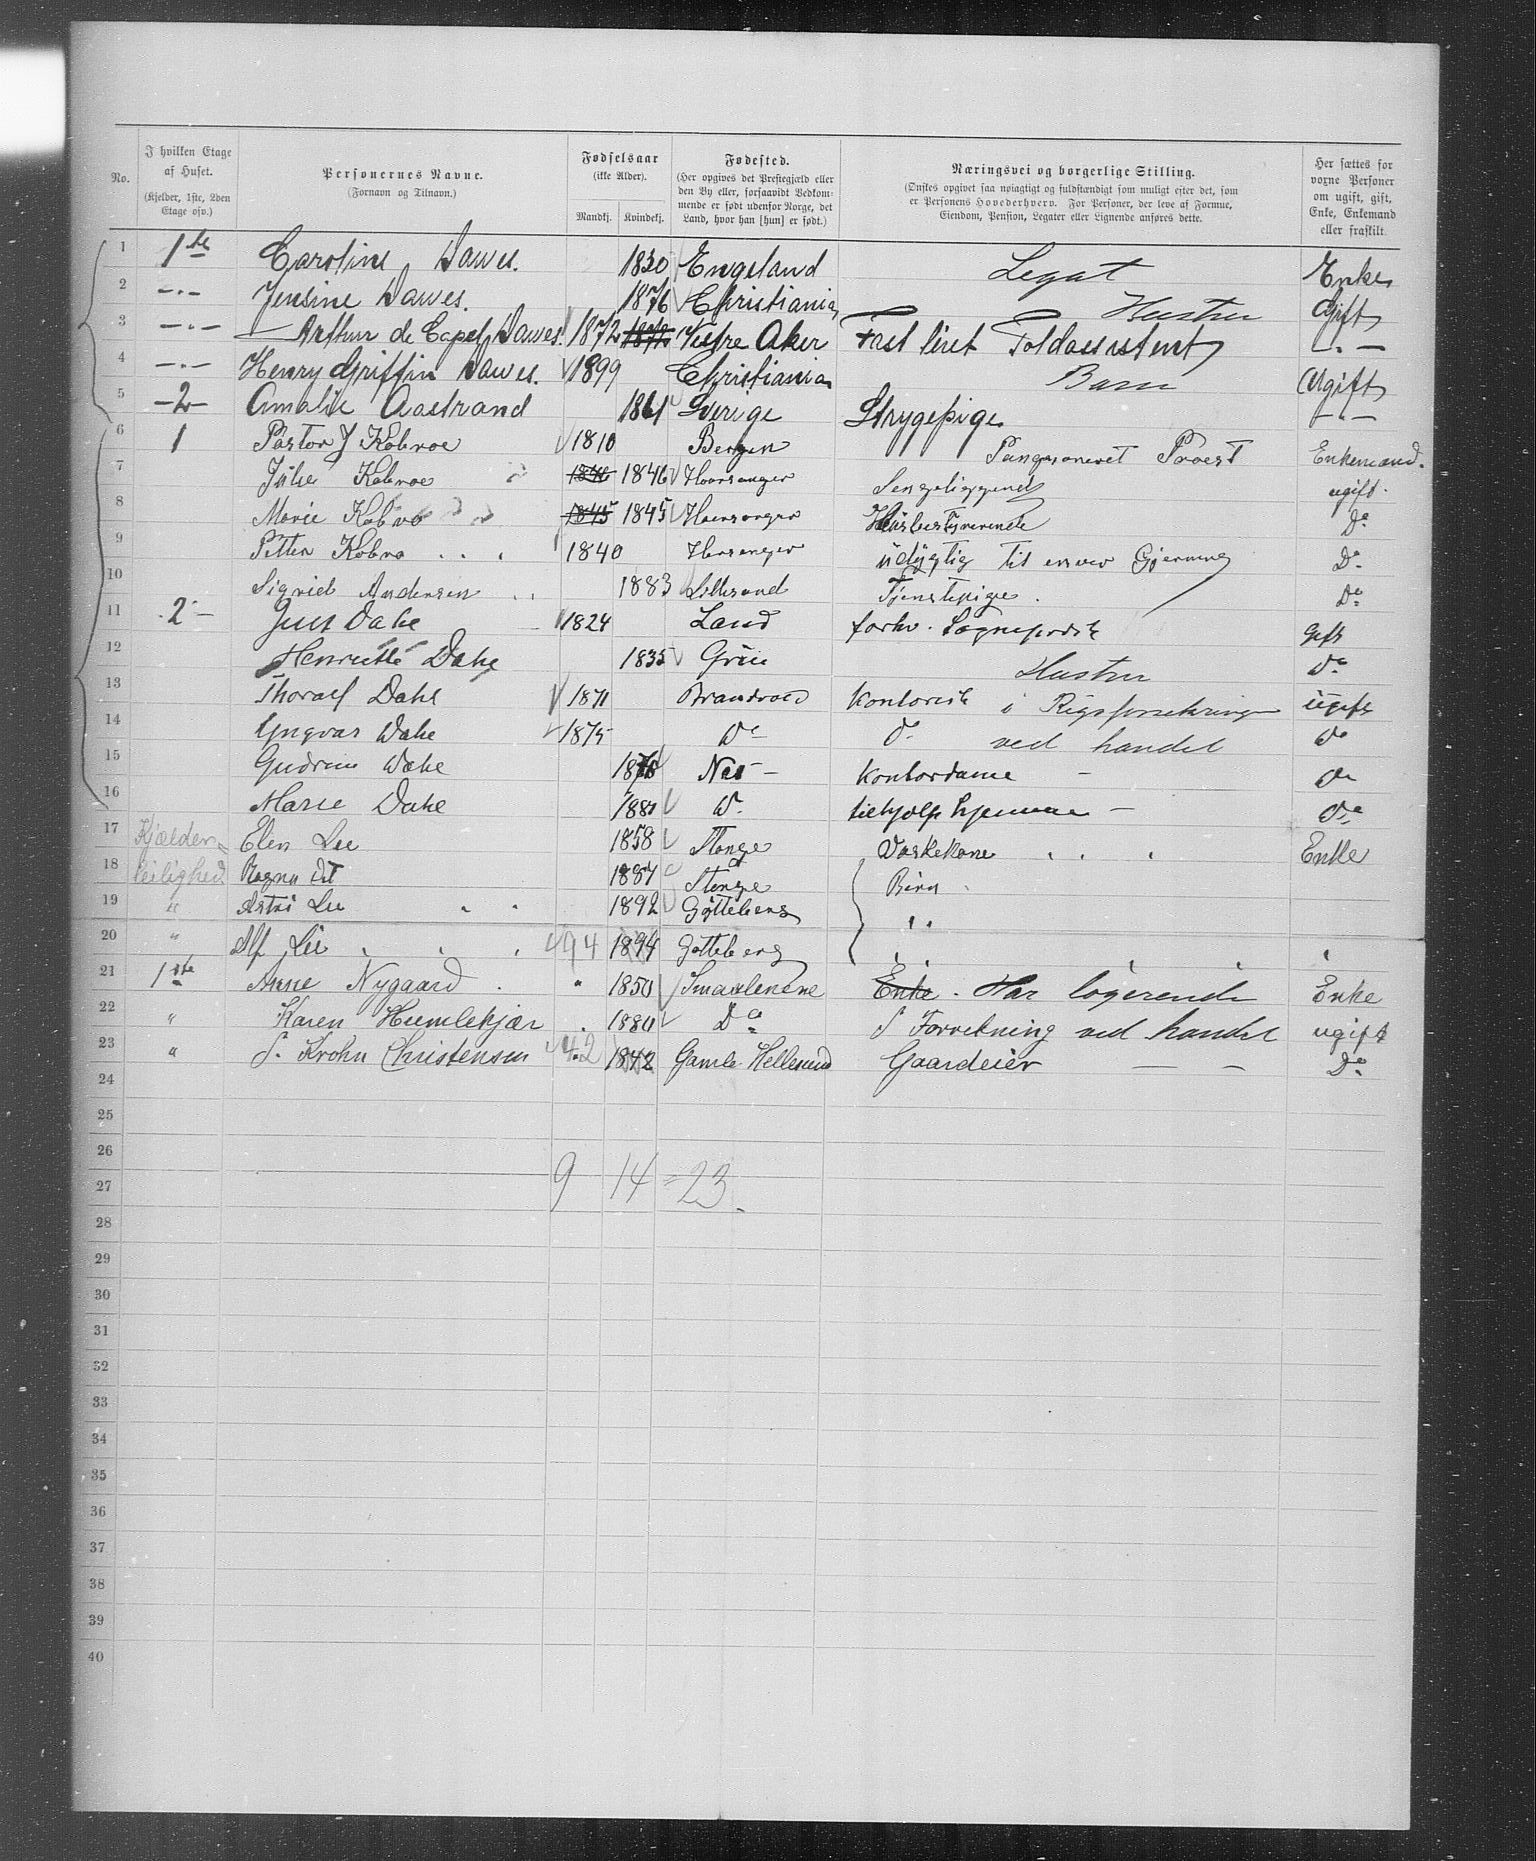 No.
I hvilken Etage af Huset. (Kjelder, 1ste, 2den Etage osv.)
Personernes Navne. (Fornavn og Tilnavn.)
Fødselsaar (ikke Alder). Mandkj. Kvindekj.
Fødested. (Her opgives det Prestegjæld eller den By eller, forsaavidt Vedkommende er født udenfor Norge, det Land, hvor han [hun] er født.)
Næringsvei og borgerlige Stilling. (Ønskes opgivet saa nøiagtigt og fuldstændigt som muligt efter det, som er Personens Hovederhverv. For Personer, der leve af Formue, Eiendom, Pension, Legater eller Lignende anføres dette.)
Her sættes for voxne Personer om ugift, gift, Enke, Enkemand eller fraskilt.
1 1ste Caroline Dawes. 1830 Engeland Legat Enke
2 -„- Jensine Dawes. 1876 Christiania Hustru Gift
3 -„- Arthur de Capel Dawes. 1872 1872 Vestre Aker Fast lönet Toldassistent -„-
4 -„- Henry Griffin Dawes. 1899 Christiania Barn Ugift
5 -2- Amalie Aastrand 1861 Sverige Strygepige -„-
6 1 Pastor J Kobroe 1810 Bergen Pangsoneret Proest Enkemand.
7 Julie Kobroe 1846 1846 Hoorsanger Sengeliggende ugift.
8 Marie Kobro 1845 1845 Hoersanger Husbestyrerende Do
9 Petter Kobro 1840 Horsanger udygtig til enver Gjerning Do
10 Sigrid Andersen 1883 Lillesand Tjenstepige. Do
11 2 Just Dahl 1824 Land forhv. Sogneprest Gift
12 Henriette Dahl 1835 Grue Hustru Do
13 Thoralf Dahl 1871 Brandvold Kontorist i Rigsforsikring ugift
14 Yngvar Dahl 1875 Do Do ved handel Do
15 Gudrun Dahl Nes - Kontordame - Do
16 Marie Dahl 1880 Do tilhjælp hjemme - Do
17 Kjælder- Elen Lie 1858 Stange Vaskekone Enke
18 leilighed Ragna dit 1887 Stange Børn
19 " Astri Lie 1892 Gøtteberg " "
20 " Alf Lie 94 1894 Gøtteberg
21 1ste Anne Nygaard " 1850 Smaalenene Enke. Har logerende Enke
22 " Karen Humlekjær 1880 Do I Forretning ved handel ugift
23 " S. Krohn Christensen 42 1842 Gamle Hellesund Gaardeier - - Do
24
25
26
9 14 = 23.
27
28
29
30
31
32
33
34
35
36
37
38
39
40